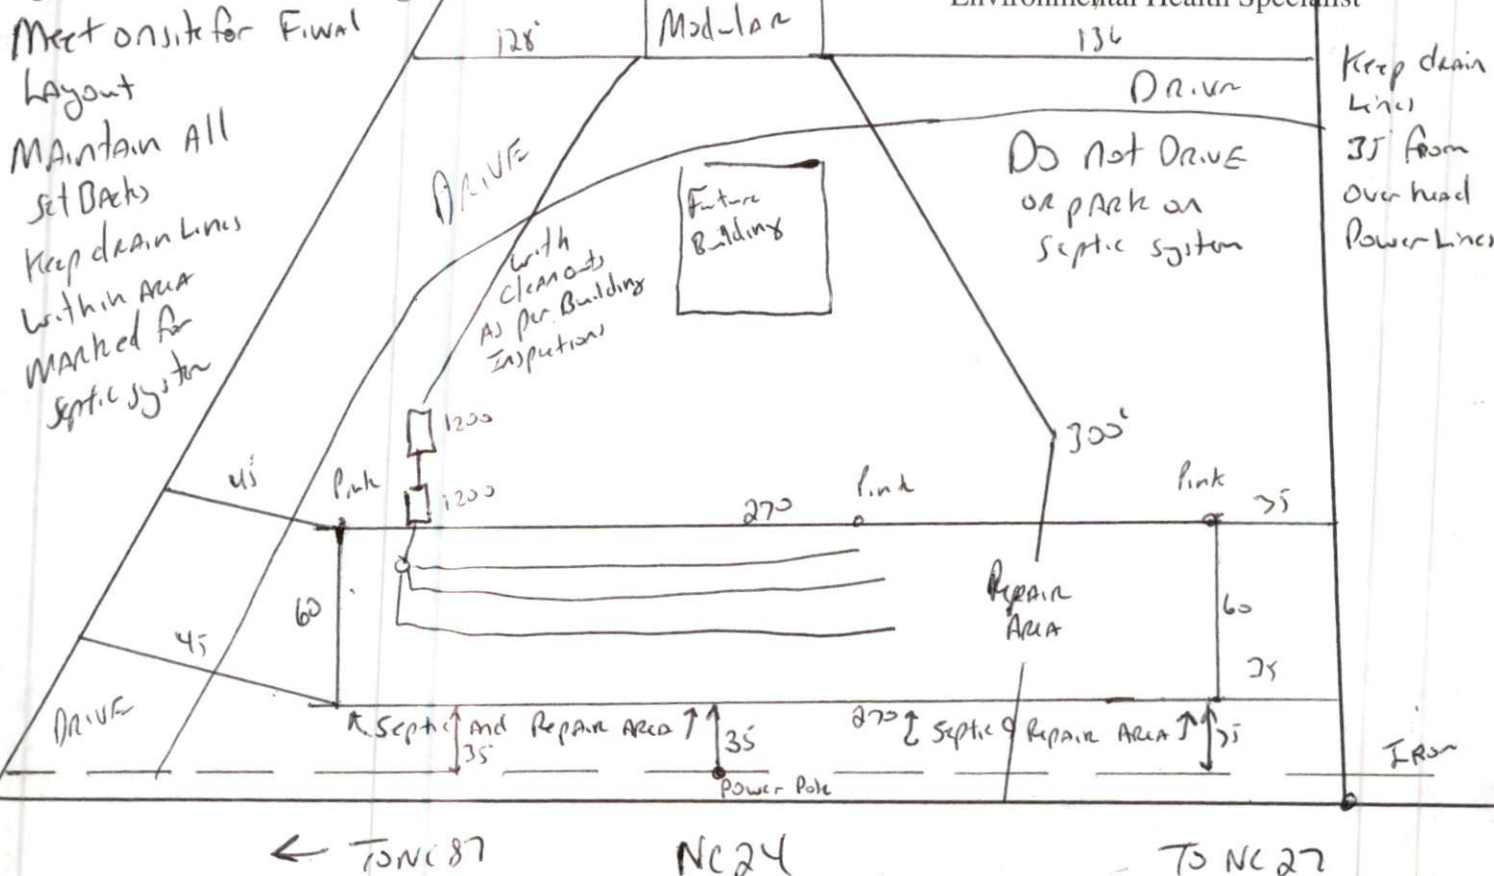 Environmental Health Specialist
Meet onsite for Final
Layout
Maintain All
setBacks
Keep drain Lines
within Area
marked for
septic system
128'
Modular
136
Drive
Keep drain
Lines
35 from
overhead
Power Lines
DRIVE
Future
Building
Do not DRIVE
or park on
septic system
with
cleanouts
As per Building
Inspections
1200
1200
300'
45
Pink
270
Pink
Pink
35
60
Repair
Area
60
45
35
DRIVE
Septic and Repair Area
35
35
270
Septic & Repair Area
35
Iron
Power Pole
← To NC 87
NC 24
To NC 27